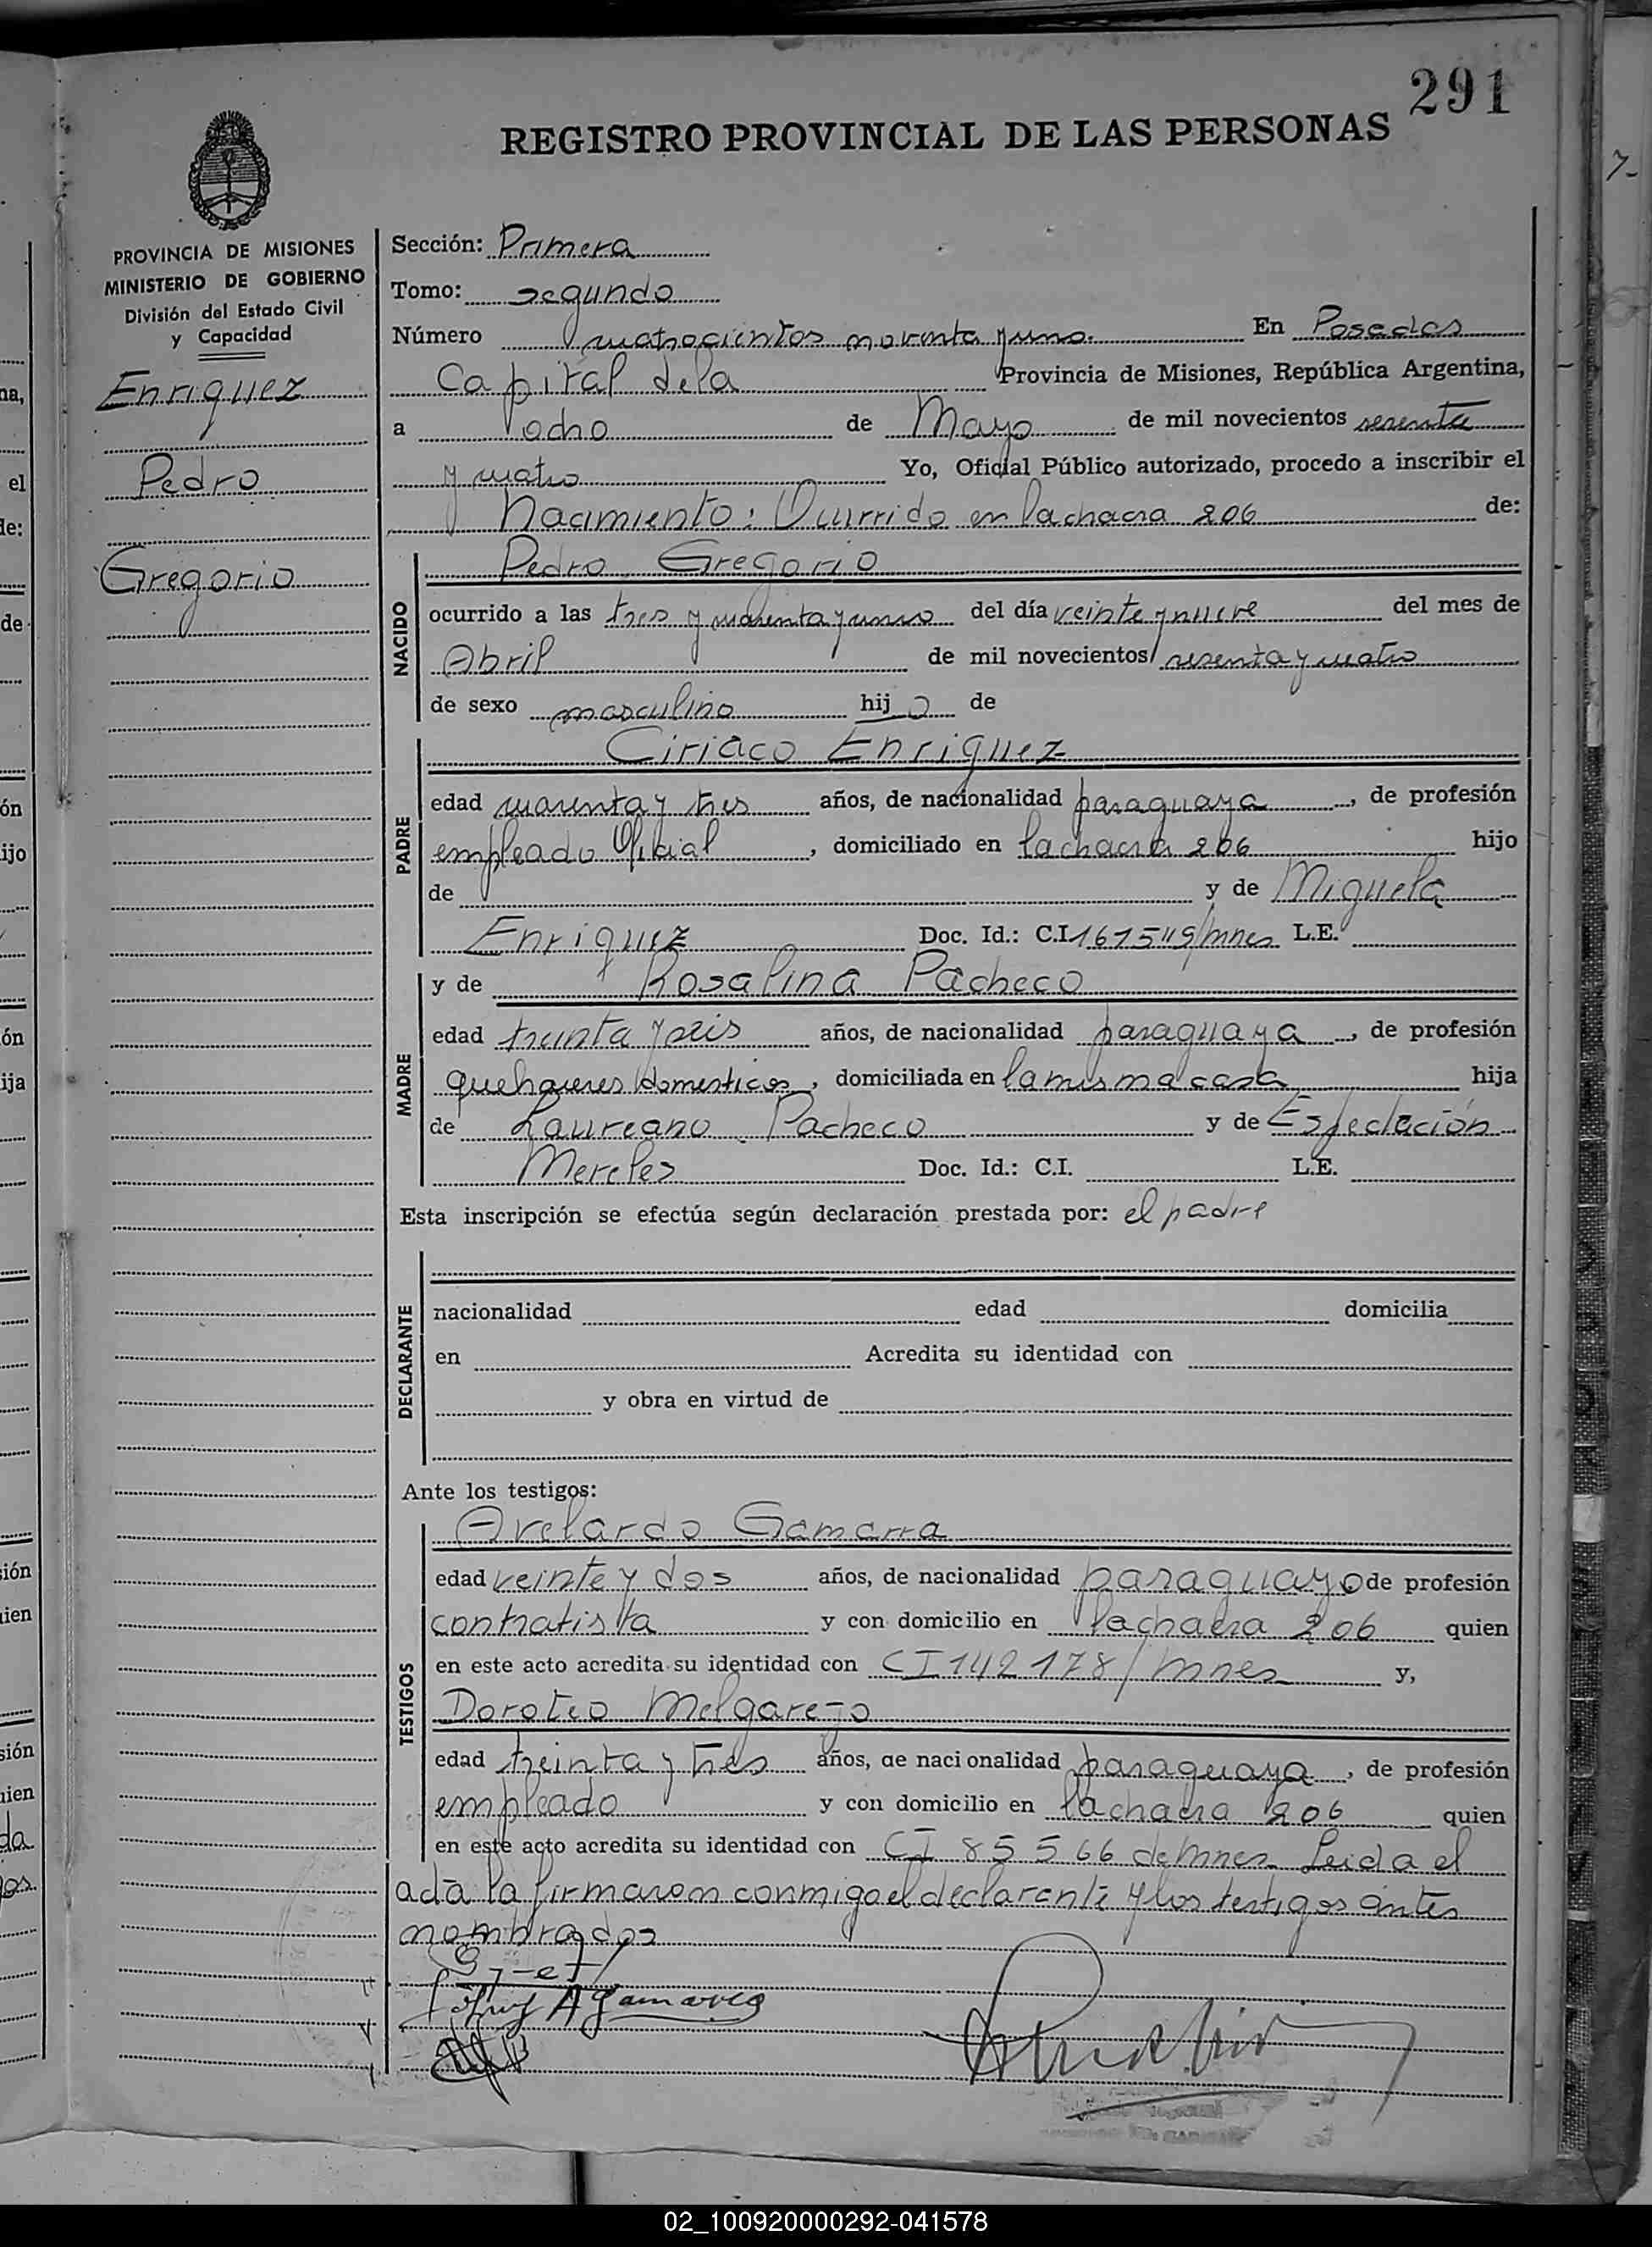 291
REGISTRO PROVINCIAL DE LAS PERSONAS
PROVINCIA DE MISIONES
MINISTERIO DE GOBIERNO
División del Estado Civil
y Capacidad
Enriquez
Pedro
Gregorio
Sección: Primera
Tomo: segundo
Número cuatrocientos noventa y uno. En Posadas
Capital de la Provincia de Misiones, República Argentina,
a ocho de Mayo de mil novecientos sesenta
y cuatro Yo, Oficial Público autorizado, procedo a inscribir el
Nacimiento: Ocurrido en la chacra 206 de:
NACIDO
Pedro Gregorio
ocurrido a las tres y cuarenta y cinco del día veinte y nueve del mes de
Abril de mil novecientos sesenta y cuatro
de sexo masculino hijo de
PADRE
Ciriaco Enriquez
edad cuarenta y tres años, de nacionalidad paraguaya, de profesión
empleado Oficial, domiciliado en la chacra 206 hijo
de y de Miguela
Enriquez Doc. Id.: C.I. /mnes L.E.
MADRE
y de Rosalina Pacheco
edad treinta y seis años, de nacionalidad paraguaya, de profesión
quehaceres domesticos, domiciliada en la misma casa hija
de Laureano Pacheco y de
Mereles Doc. Id.: C.I. L.E.
Esta inscripción se efectúa según declaración prestada por: el padre
DECLARANTE
nacionalidad edad domicilia
en Acredita su identidad con
y obra en virtud de
Ante los testigos:
TESTIGOS
Avelardo Gamarra
edad veinte y dos años, de nacionalidad paraguayo de profesión
contratista y con domicilio en la chacra 206 quien
en este acto acredita su identidad con CI 142178/mnes y,
Doroteo Melgarejo
edad treinta y tres años, de nacionalidad paraguaya, de profesión
empleado y con domicilio en la chacra 206 quien
en este acto acredita su identidad con CI 85566 de Mnes Leida el
acta la firmaron conmigo el declarante y los testigos antes
nombrados
A gamarra
02_100920000292-041578